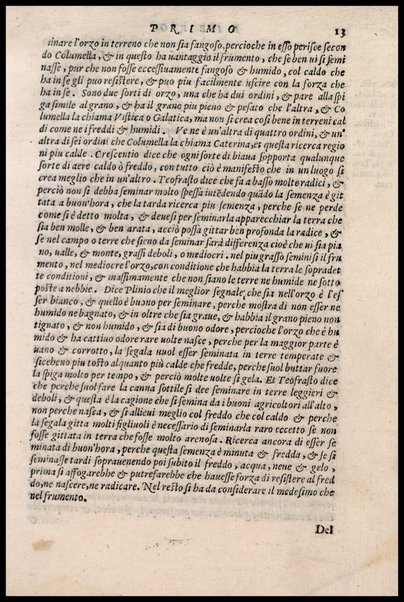 PORIMO 13
minare l'orzo in terreno che non sia fangoso, percioche in esso perisce secon
do Columella, & in questo ha uantaggio il frumento, che se ben ui si semi
nasse, pur che non fosse eccessiuamente fangoso & humido, col caldo che
ha in se gli puo resistere, & puo piu facilmente uscire con la forza che
ha in se. Sono due sorti di orzo, una che ha dui ordini, & pare alla spi
ga simile al grano, & ha il grano piu pieno e pesato che l'altra, & Co
lumella la chiama Vstica o Galatica, ma non si crea cosi bene in terreni cal
di come ne i freddi & humidi. Ve ne è un'altra di quattro ordini, & un'
altra di sei ordini che Columella la chiama Caterina, et questa ricerca regio
ni piu calde. Crescentio dice che ogni sorte di biaua sopporta qualunque
sorte di aere caldo ò freddo, con tutto ciò è manifesto che in un luogo si
crea meglio che in un'altro. Teofrasto dice che fa a basso molte radici, &
perciò non si debba seminar molto spessa intẽdendo quãdo la semenza è git
tata a buon'hora, che la tarda ricerca piu semenza, perche se ne perde
come si è detto molta, & deuesi per seminarla apparecchiar la terra che
sia ben molle, & ben arata, acciò possa gittar ben profonda la radice, &
se nel campo o terre che sieno da seminar farà differenza cioè che ui sia pia
no, ualle, & monte, grassi deboli, o mediocri, nel piu grasso seminisi il fru
mento, nel mediocre l'orzo, con conditione che habbia la terra le sopradet
te conditioni, & massimamente che non siano le terre ne humide ne sotto
poste a nebbie. Dice Plinio che il meglior segnale, che sia nell'orzo è l'es
ser bianco, & quello è buono per seminare, perche mostra di non esser ne
humido ne bagnato, & in oltre che sia graue, & habbia il grano pieno non
tignato, & non humido, & sia di buono odore, percioche l'orzo che è hu
mido & ha cattiuo odore rare uolte nasce, perche per la maggior parte è
uano & corrotto, la segala uuol esser seminata in terre temperate &
siccheno piu tosto alquanto più calde che fredde, perche suol buttar fuore
la spiga molto per tempo, & perciò molte uolte si gela. Et Teofrasto dice
che perche suol fare la canna sottile si dee seminare in terre leggieri &
deboli, & questa è la cagione che si semina da i buoni agricoltori all'alto,
non perche nasca, & si allieui meglio col freddo che col caldo & perche
la segala gitta molti figliuoli è necessario di seminarla raro eccetto se non
fosse gittata in terra che fosse molto arenosa. Ricerca ancora di esser se
minata di buon'hora, perche questa semenza è minuta & fredda, & se si
seminasse tardi soprauenendo poi subito il freddo, acqua, neue & gelo,
prima si affogarebbe & putrefarebbe che hauesse forza di resistere al fred
do, ne nascere, ne radicare. Nel resto si ha da considerare il medesimo che
nel frumento.
Del